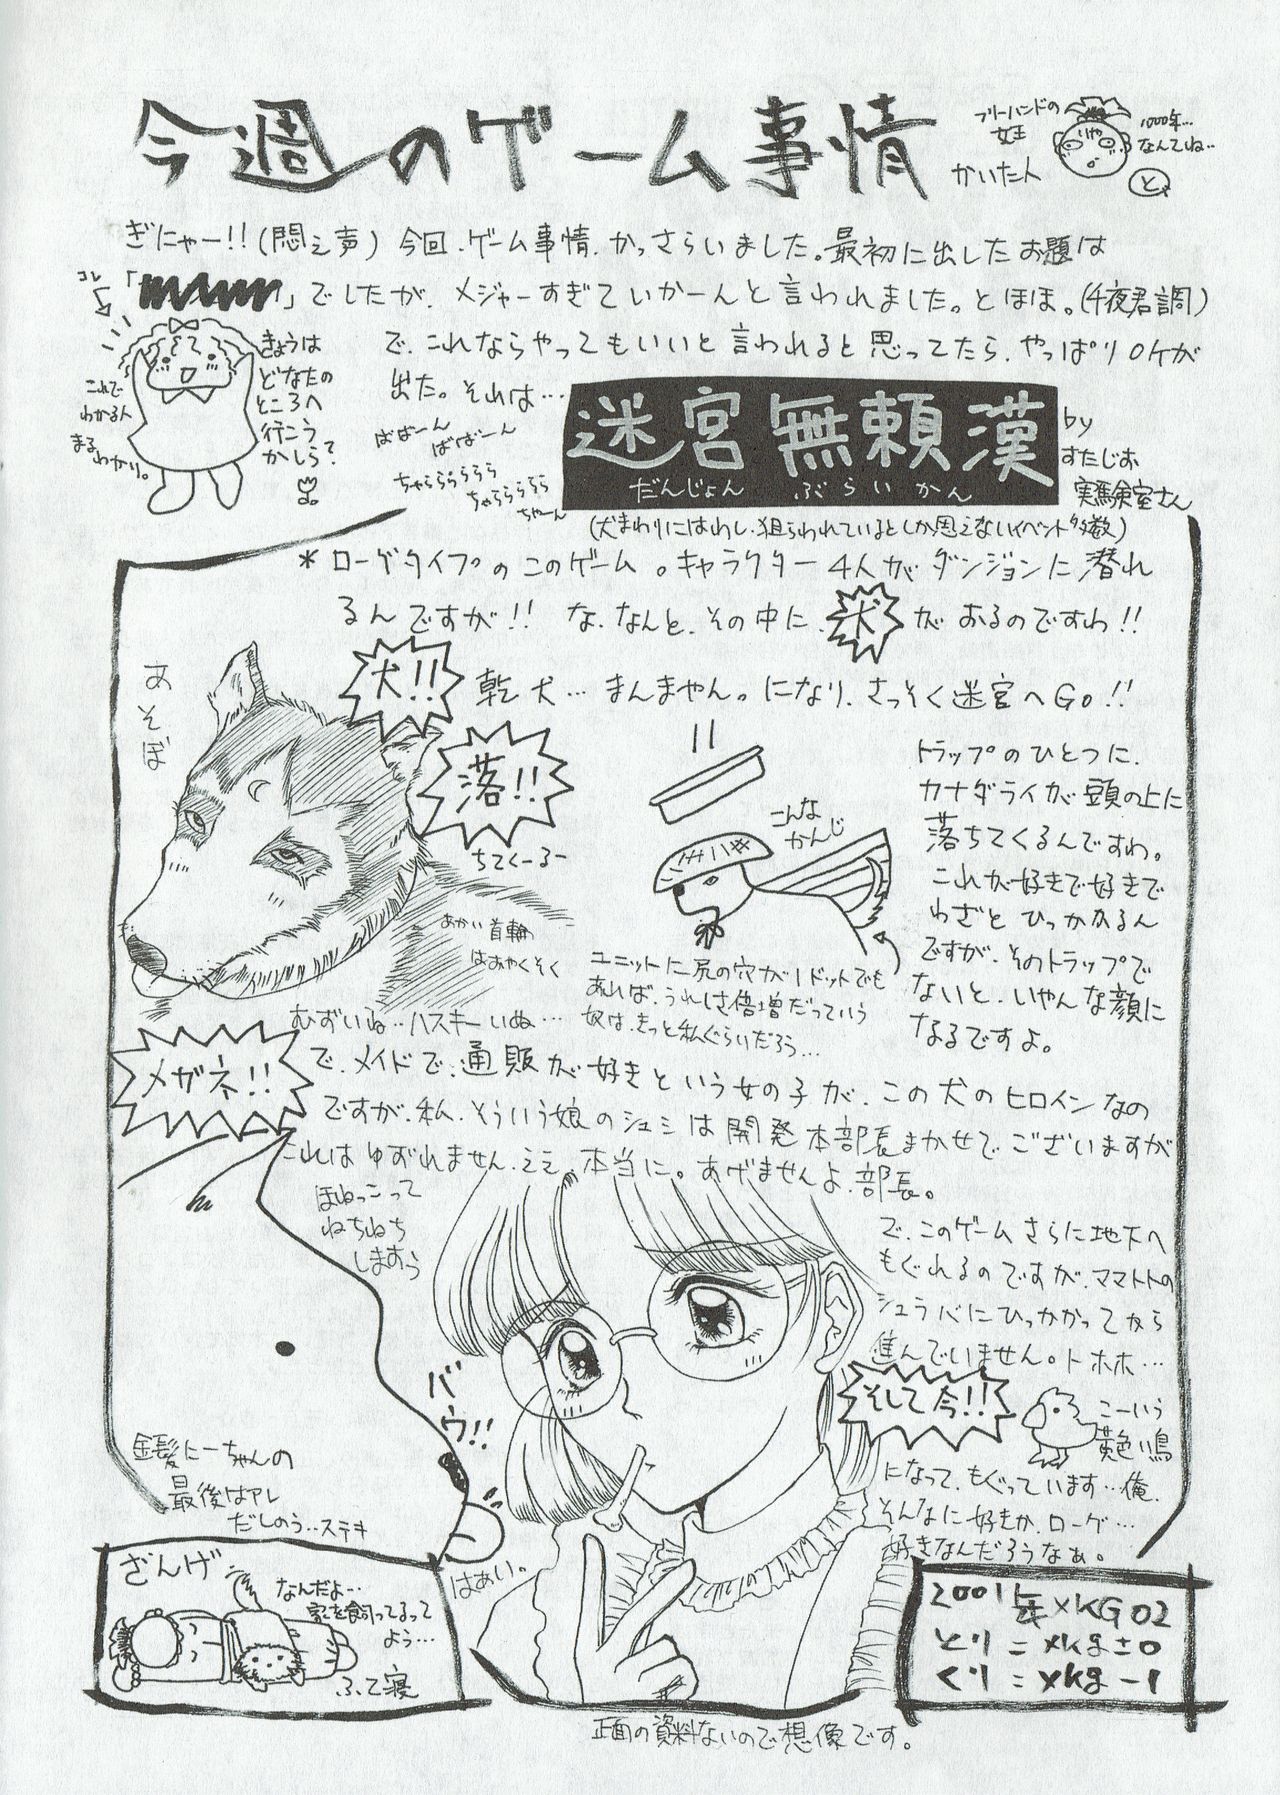 今週のゲーム事情
フリーハンドの
女王
かいた人
1000年…
なんてね…
と
ぎにゃー!!(悶え声) 今回、ゲーム事情、かっさらいました。最初に出したお題は
「　　　」でしたが、メジャーすぎていかーんと言われました。とほほ。(千夜君調)
コレ
これで
わかる人
まる
わかり。
きょうは
どなたの
ところへ
行こう
かしら?
で、これならやってもいいと言われると思ってたら、やっぱりOKが
出た。それは…
ばばーん
ばばーん
ちゃららららら
ちゃららららら
ちゃーん
迷宮無頼漢
だんじょん ぶらいかん
by
すたじお
実験室さん
(犬まわりにはわし、狙らわれているとしか思えないイベント多数)
*ローグタイプのこのゲーム。キャラクター4人がダンジョンに潜れ
るんですが!! な、なんと、その中に、犬がおるのですわ!!
犬!!
乾犬…まんまやん。になり、さっそく迷宮へGO!!
あそぼ
落!!
ちてくーるー
こんな
かんじ
トラップのひとつに、
カナダライが頭の上に
落ちてくるんですわ。
これが好きで好きで
わざとひっかかるん
ですが、そのトラップで
ないと、いやんな顔に
なるですよ。
あかい首輪
はおやくそく
ユニットに尻の穴が1ドットでも
あれば、うれしさ倍増だっていう
奴は、きっと私ぐらいだろう…
むずいね…ハスキーいぬ…
メガネ!!
で、メイドで、通販が好きという女の子が、この犬のヒロインなの
ですが、私、そういう娘のシュミは開発本部長まかせで、ございますが
これはゆずれません、ええ、本当に。あげませんよ、部長。
ほねっこって
ねちねち
しますぅ
で、このゲームさらに地下へ
もぐれるのですが、ママトトの
シュラバにひっかかってから
進んでいません。トホホ…
そして今!!
こーいう
黄色い鳥
になって、もぐっています…俺、
そんなに好きか、ローグ…
好きなんだろうなぁ。
バウ!!
金髪にーちゃんの
最後はアレ
だしのう…ステキ
はぁい。
ざんげ
なんだよ…
家を飼ってるって
よう…
ふて寝
2001年×KG02
とり=×kg±0
くり=×kg-1
正面の資料ないので想像です。